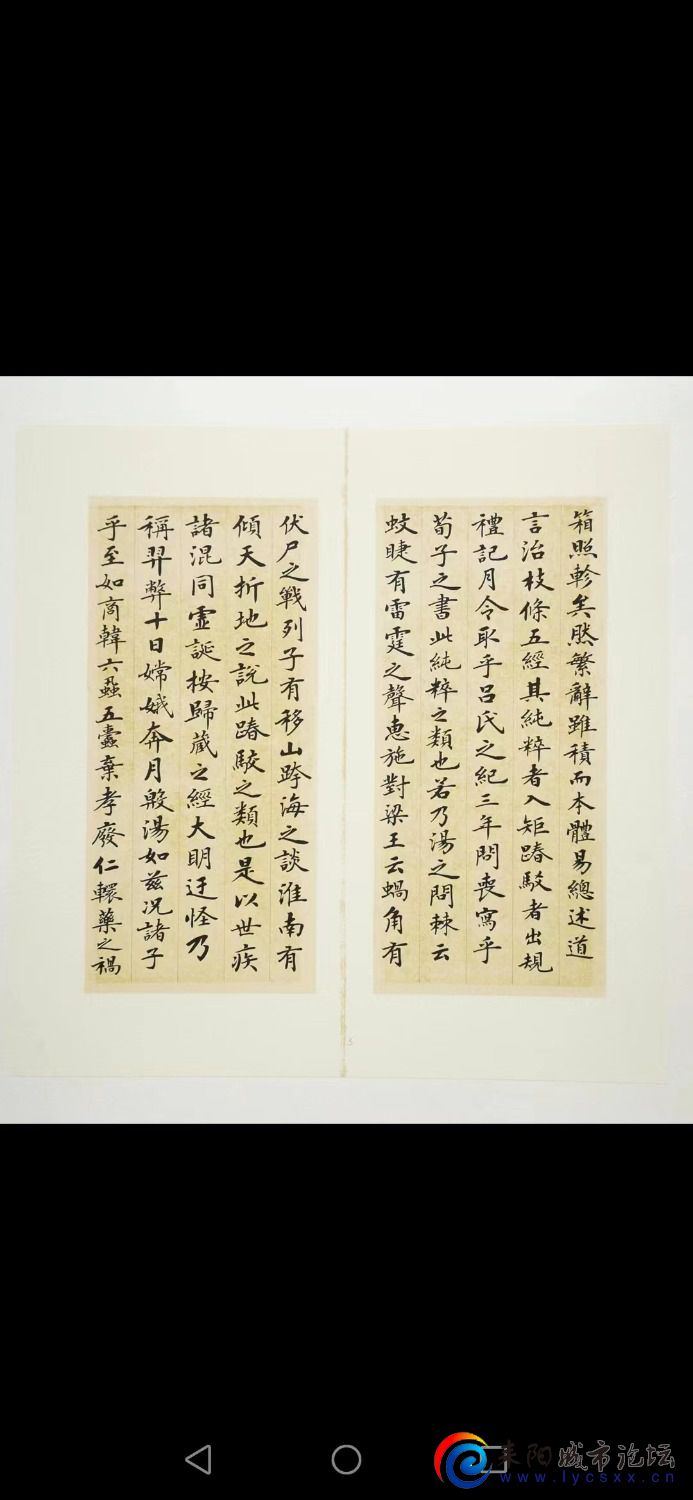 箱照軫矣然繁辭雖積而本體易總述道
言治枝條五經其純粹者入矩踳駮者出規
禮記月令取乎呂氏之紀三年問喪寫乎
荀子之書此純粹之類也若乃湯之問棘云
蚊睫有雷霆之聲惠施對梁王云蝸角有
伏尸之戰列子有移山跨海之談淮南有
傾天折地之說此踳駮之類也是以世疾
諸混同虛誕按歸藏之經大明迂怪乃
稱羿弊十日嫦娥奔月殷湯如茲況諸子
乎至如商韓六蝨五蠹棄孝廢仁轘藥之禍
5
耒阳城市论坛
www.lycsxx.cn